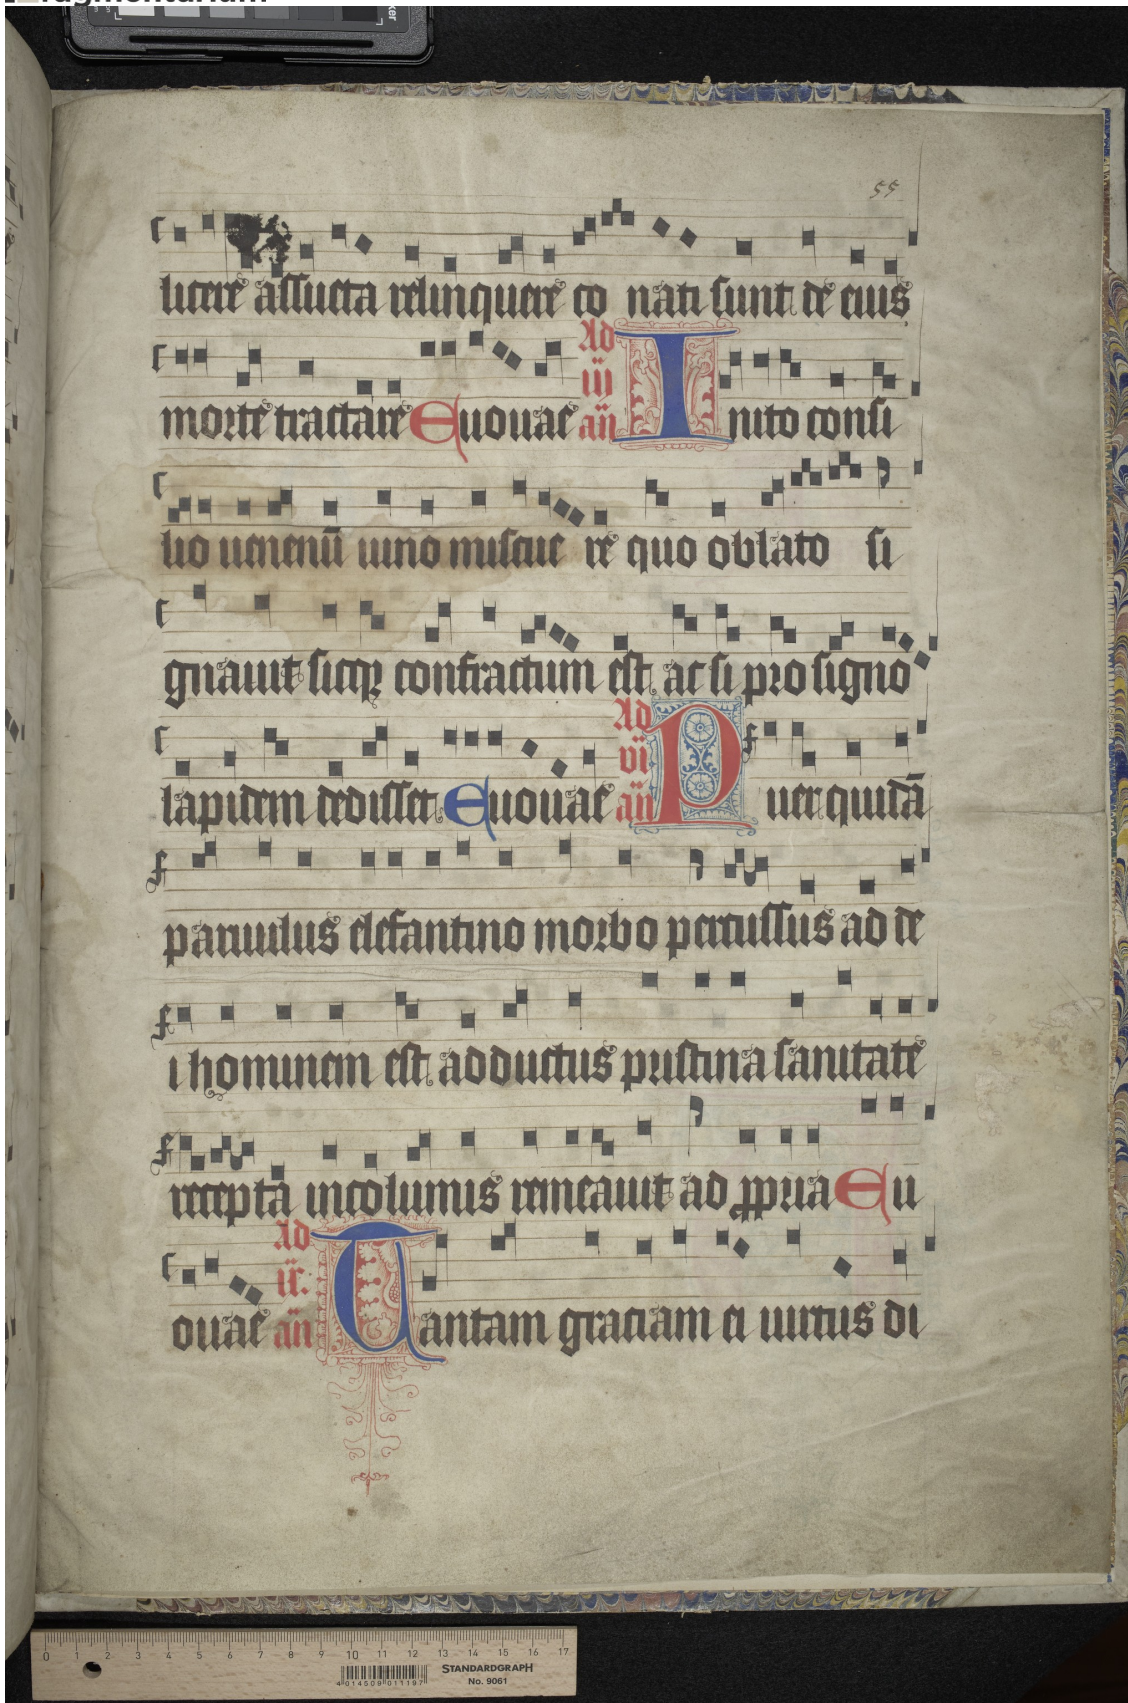 55
licere assueta relinquere co nati sunt de eius
morte tractare Euouae Ad iii an Inito consi
lio uenenū uino miscue re quo oblato si
gnauit sicqꝫ confractum est ac si pro signo
lapidem dedisset Euouae Ad vi an Puer quidā
paruulus elefantino morbo percussus ad de
i hominem est adductus pristina sanitate
recepta incolumis remeauit ad ꝓpria Eu
ouae Ad ix an Tantam graciam ei uirtus di
0 1 2 3 4 5 6 7 8 9 10 11 12 13 14 15 16 17
4 014509 011197
STANDARDGRAPH
No. 9061